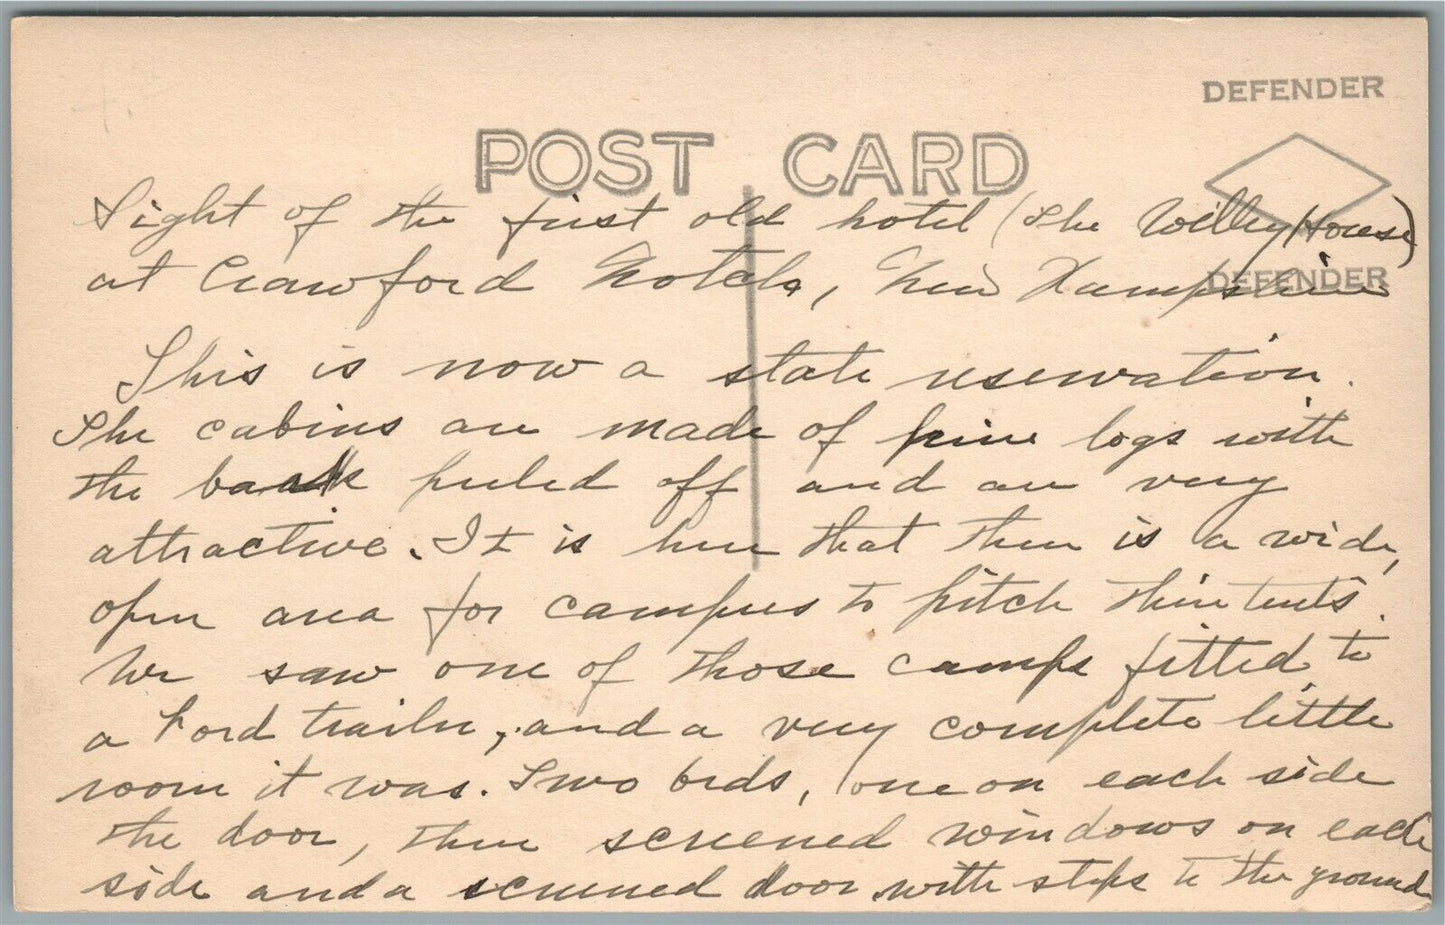 DEFENDER
POST CARD
Sight of the first old hotel (The Willey House)
at Crawford Notch, New Hampshire
DEFENDER
This is now a state reservation.
The cabins are made of pine logs with
the bark peeled off and are very
attractive. It is here that there is a wide,
open area for campers to pitch their tents.
We saw one of those camps fitted to
a Ford trailer, and a very complete little
room it was. Two beds, one on each side
the door, three screened windows on each
side and a screened door with steps to the ground